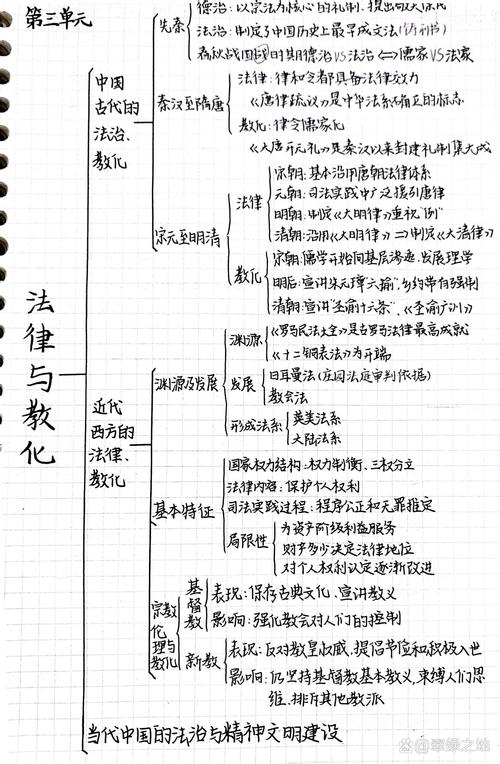 第三单元
法律与教化
中国古代的法治、教化
先秦
德治:以宗法为核心的礼制,提出
法治:制定了中国历史上最早成文法(铸刑书)
春秋战国时期德治VS法治⇔儒家VS法家
秦汉至隋唐
法律:律和令都具备法律效力
《唐律疏议》是中华法系确正的标志
教化:律令儒家化
《大唐开元礼》是秦汉以来封建礼制集大成
宋元至明清
法律
宋朝:基本沿用唐朝法律体系
元朝:司法实践中广泛援引唐律
明朝:制定《大明律》重视"例"
清朝:沿用《大明律》⇒制定《大清律》
教化
宋朝:儒学开始向基层渗透,发展理学
明后:宣讲朱元璋"六谕",乡约带有强制
清朝:宣讲"圣谕十六条"、《圣谕广训》
近代西方的法律、教化
渊源及发展
渊源
《罗马民法大全》是古罗马法律最高成就
《十二铜表法》为开端
发展
日耳曼法(庄园法庭审判依据)
教会法
形成法系
英美法系
大陆法系
基本特征
国家权力结构:权力制衡、三权分立
法律内容:保护个人权利
司法实践过程:程序公正和无罪推定
局限性
为资产阶级利益服务
财产多少决定法律地位
对个人权利认定逐渐改进
宗教伦理与教化
基督教
表现:保存古典文化、宣讲教义
影响:强化教会对人们的控制
新教
表现:反对教皇权威,提倡节俭和积极入世
影响:仍坚持基督教基本教义,束缚人们思
维、排斥其他教派
当代中国的法治与精神文明建设
@翠绿之地